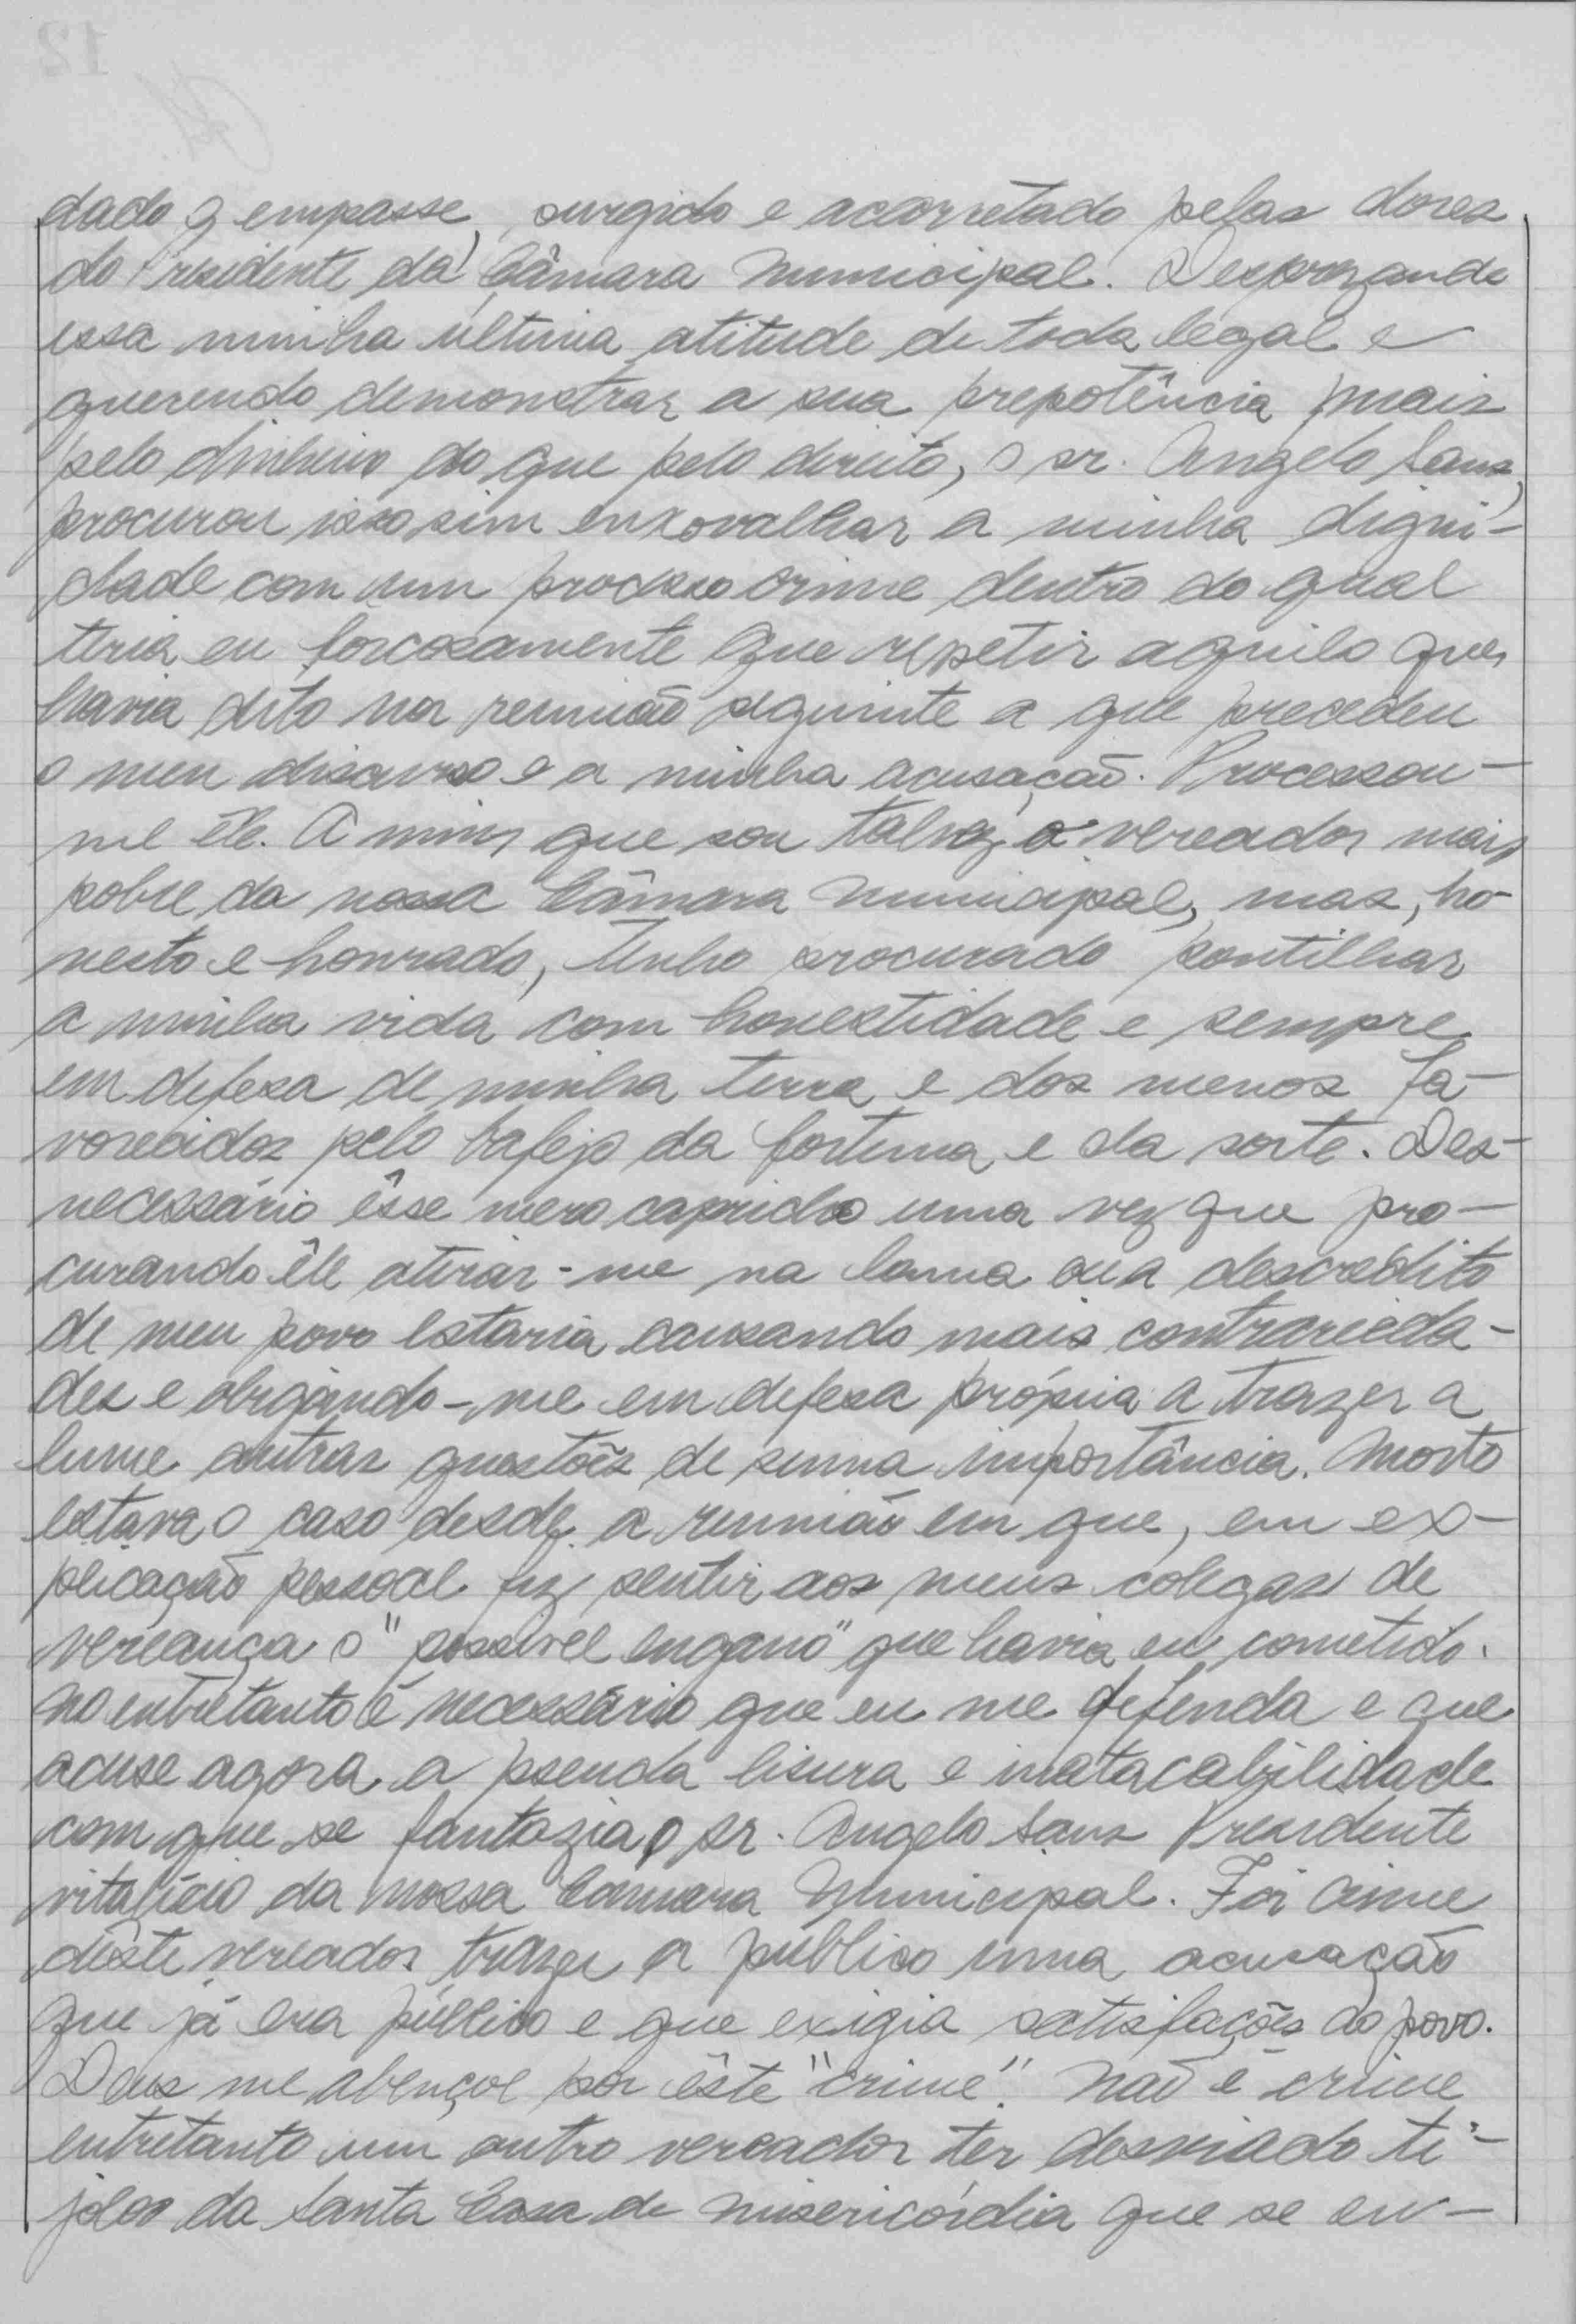 dado o empasse, surgido e acarretado pelas dores
do Presidente da Câmara Municipal. Desprezando
essa minha ultima atitude de toda legal e
querendo demonstrar a sua prepotência mais
pelo dinheiro do que pelo direito, o sr. Angelo Sans,
procurou isso sim enxovalhar a minha digni-
dade com um processo crime dentro do qual
teria eu forçosamente que repetir aquilo que
havia dito na reunião seguinte a que precedeu
o meu discurso e a minha acusação. Processou-
me êle. A mim que sou talvez o vereador mais
pobre da nossa Câmara Municipal, mas, ho-
nesto e honrado, tenho procurado pontilhar
a minha vida com honestidade e sempre
em defesa de minha terra e dos menos fa-
vorecidos pelo bafejo da fortuna e da sorte. Des-
necessário êsse mero capricho uma vez que pro-
curando êle atirar-me na lama ou a descrédito
de meu povo estaria causando mais contrarieda-
des e obrigando-me em defesa própria a trazer a
lume outras questões de suma importância. Morto
estava o caso desde a reunião em que, em ex-
plicação pessoal fiz sentir aos meus colegas de
vereança o "possivel engano" que havia eu cometido.
No entretanto é necessário que eu me defenda e que
acuse agora a pseuda lisura e inatacabilidade
com que se fantazia o sr. Angelo Sans Presidente
vitalício da nossa Camara Municipal. Foi crime
dêste vereador trazer a público uma acusação
que já era público e que exigia satisfações ao povo.
Deus me abençoe por êste "crime". Não é crime
entretanto um outro vereador ter desviado ti-
jolos da Santa Casa de Misericórdia que se en-
12